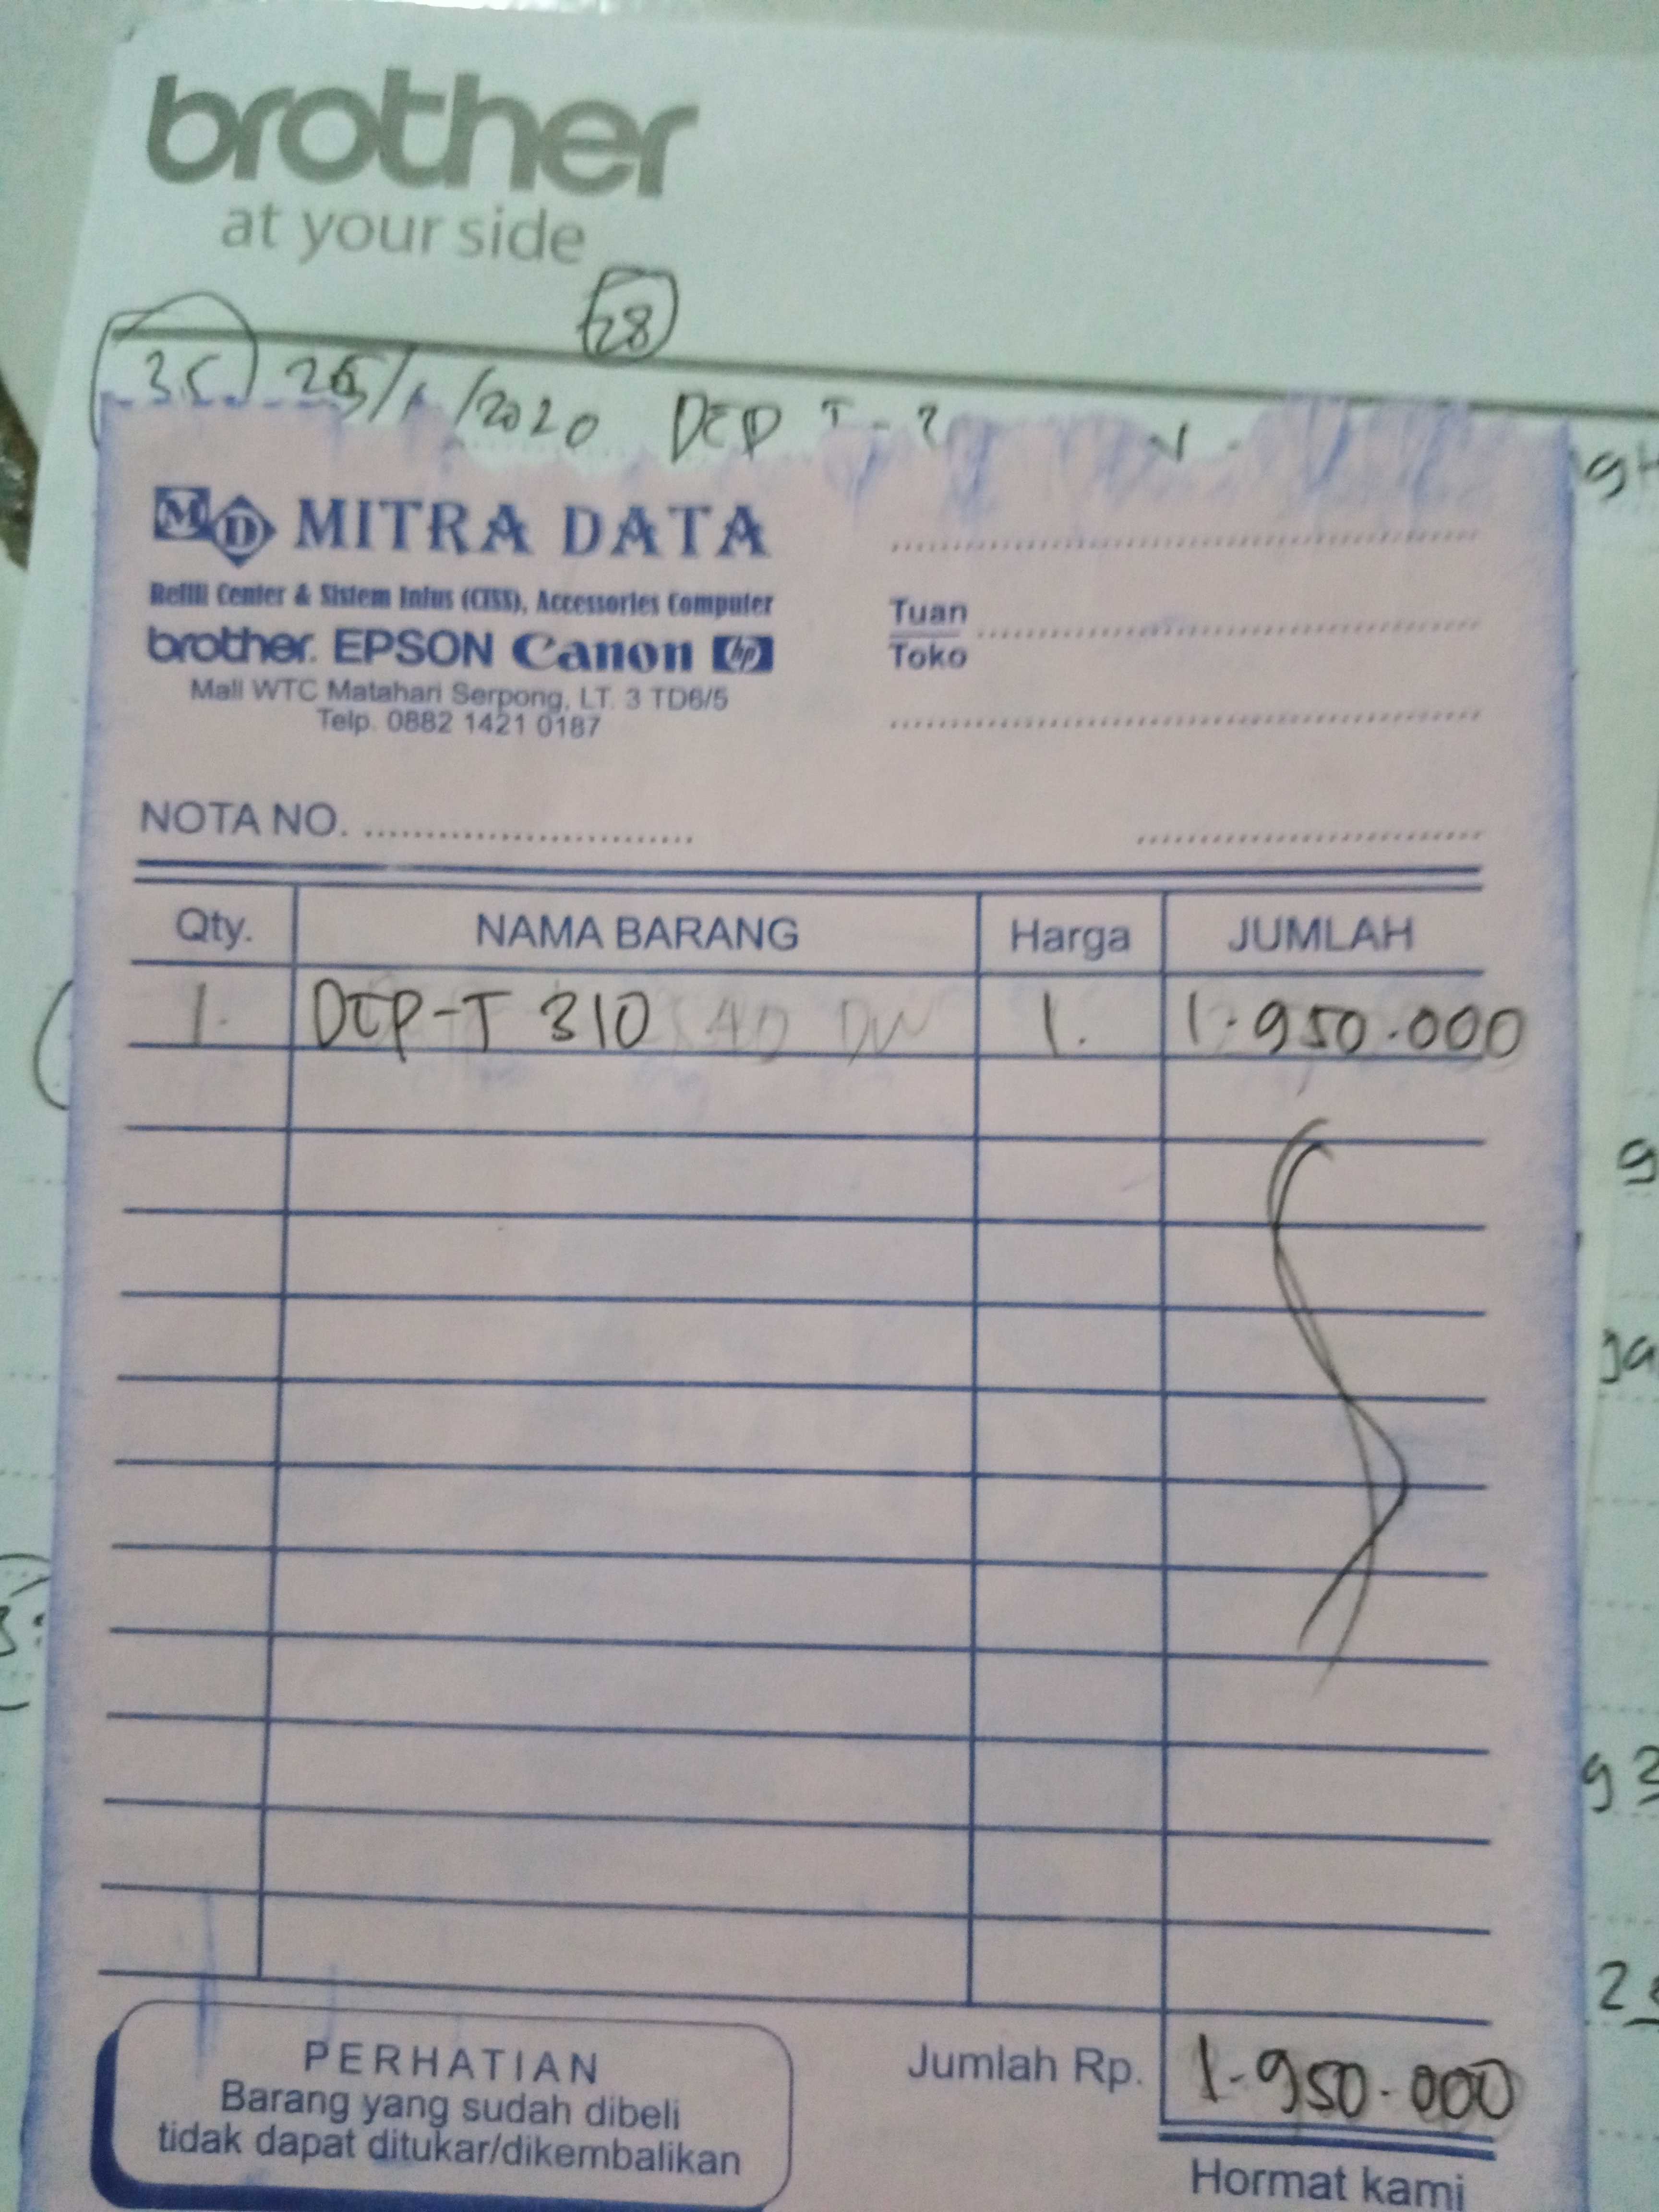 brother
at your side
28
35 26/1/2020 DCP T-3
MD MITRA DATA
Refill Center & Sistem Infus (CISS), Accessories Computer
brother. EPSON Canon hp
Mall WTC Matahari Serpong, LT. 3 TD6/5
Telp. 0882 1421 0187
Tuan
Toko
NOTA NO.
Qty. NAMA BARANG Harga JUMLAH
1. DCP-T 310 1. 1.950.000
PERHATIAN
Barang yang sudah dibeli
tidak dapat ditukar/dikembalikan
Jumlah Rp. 1.950.000
Hormat kami